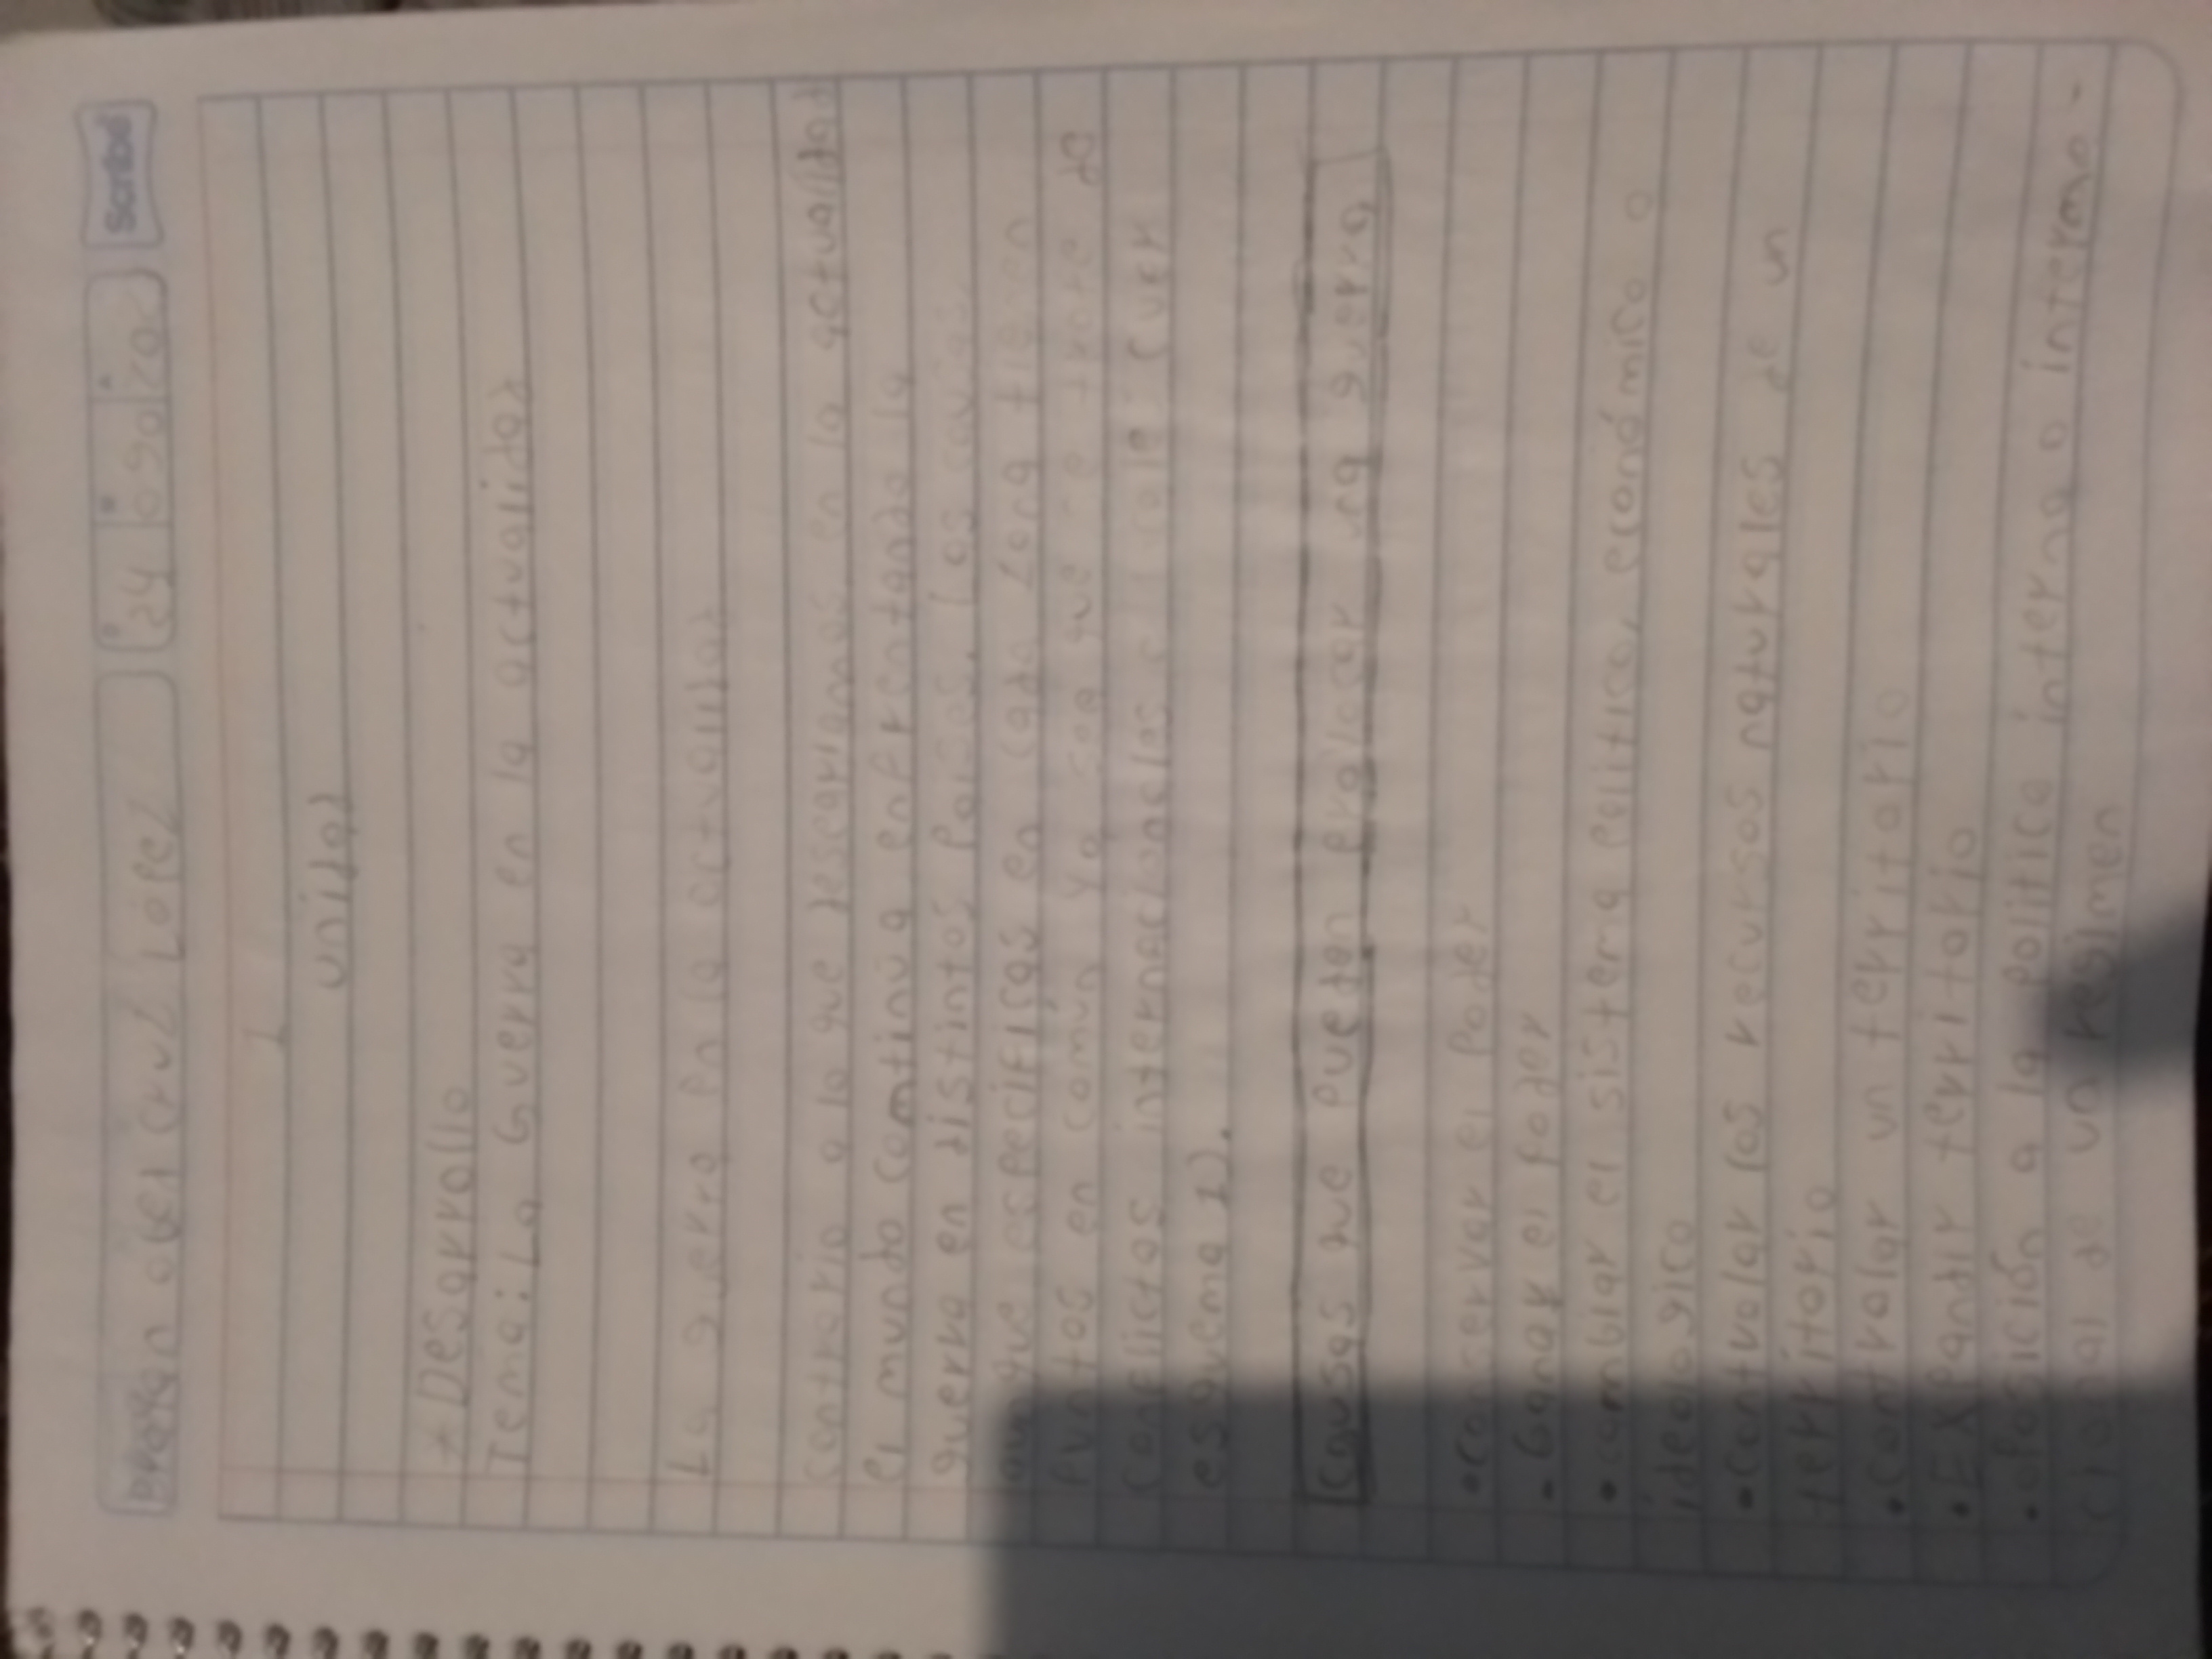 Brayan abel cruz López 24 08 20 Scribe
1
unidad
* Desarrollo
Tema: La Guerra en la actualidad
La guerra en la actualidad
contrario a lo que desearíamos en la actualidad
el mundo continúa enfrentando la
guerra en distintos países. Las
aunque específicas en cada zona tienen
puntos en común ya sea que se trate de
conflictos internacionales o (ver
esquema 1).
Causas que pueden provocar una guerra
• conservar el poder
• Ganar el poder
• cambiar el sistema político, económico o
ideológico
• controlar los recursos naturales de un
territorio
• controlar un territorio
• Expandir territorio
• oposición a la política interna o interna-
cional de un regimen